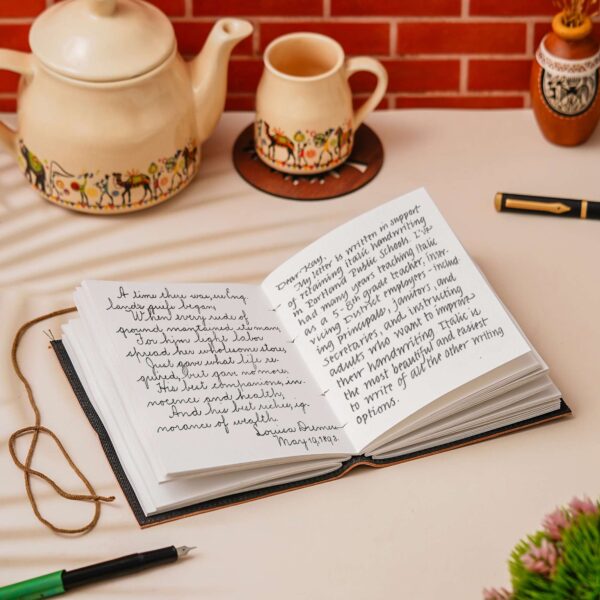 A time there was, ere Eng-
lands griefs began,
When every rude of
ground maintained its man;
For him light labor
spread her wholesome store,
Just gave what life re-
quired, but gave no more,
His best companions, in-
nocence and health,
And his best riches, ig-
norance of wealth.
Louisa
May 19, 1893.
Dear Kay,
My letter is written in support
of retaining italic handwriting
in Portland Public Schools. I've
had many years teaching Italic
as a 5-8th grade teacher, inser-
vicing District employers - includ
ing principals, janitors, and
secretaries, and instructing
adults who want to improve
their handwriting. Italic is
the most beautiful and easiest
to write of all the other writing
options.